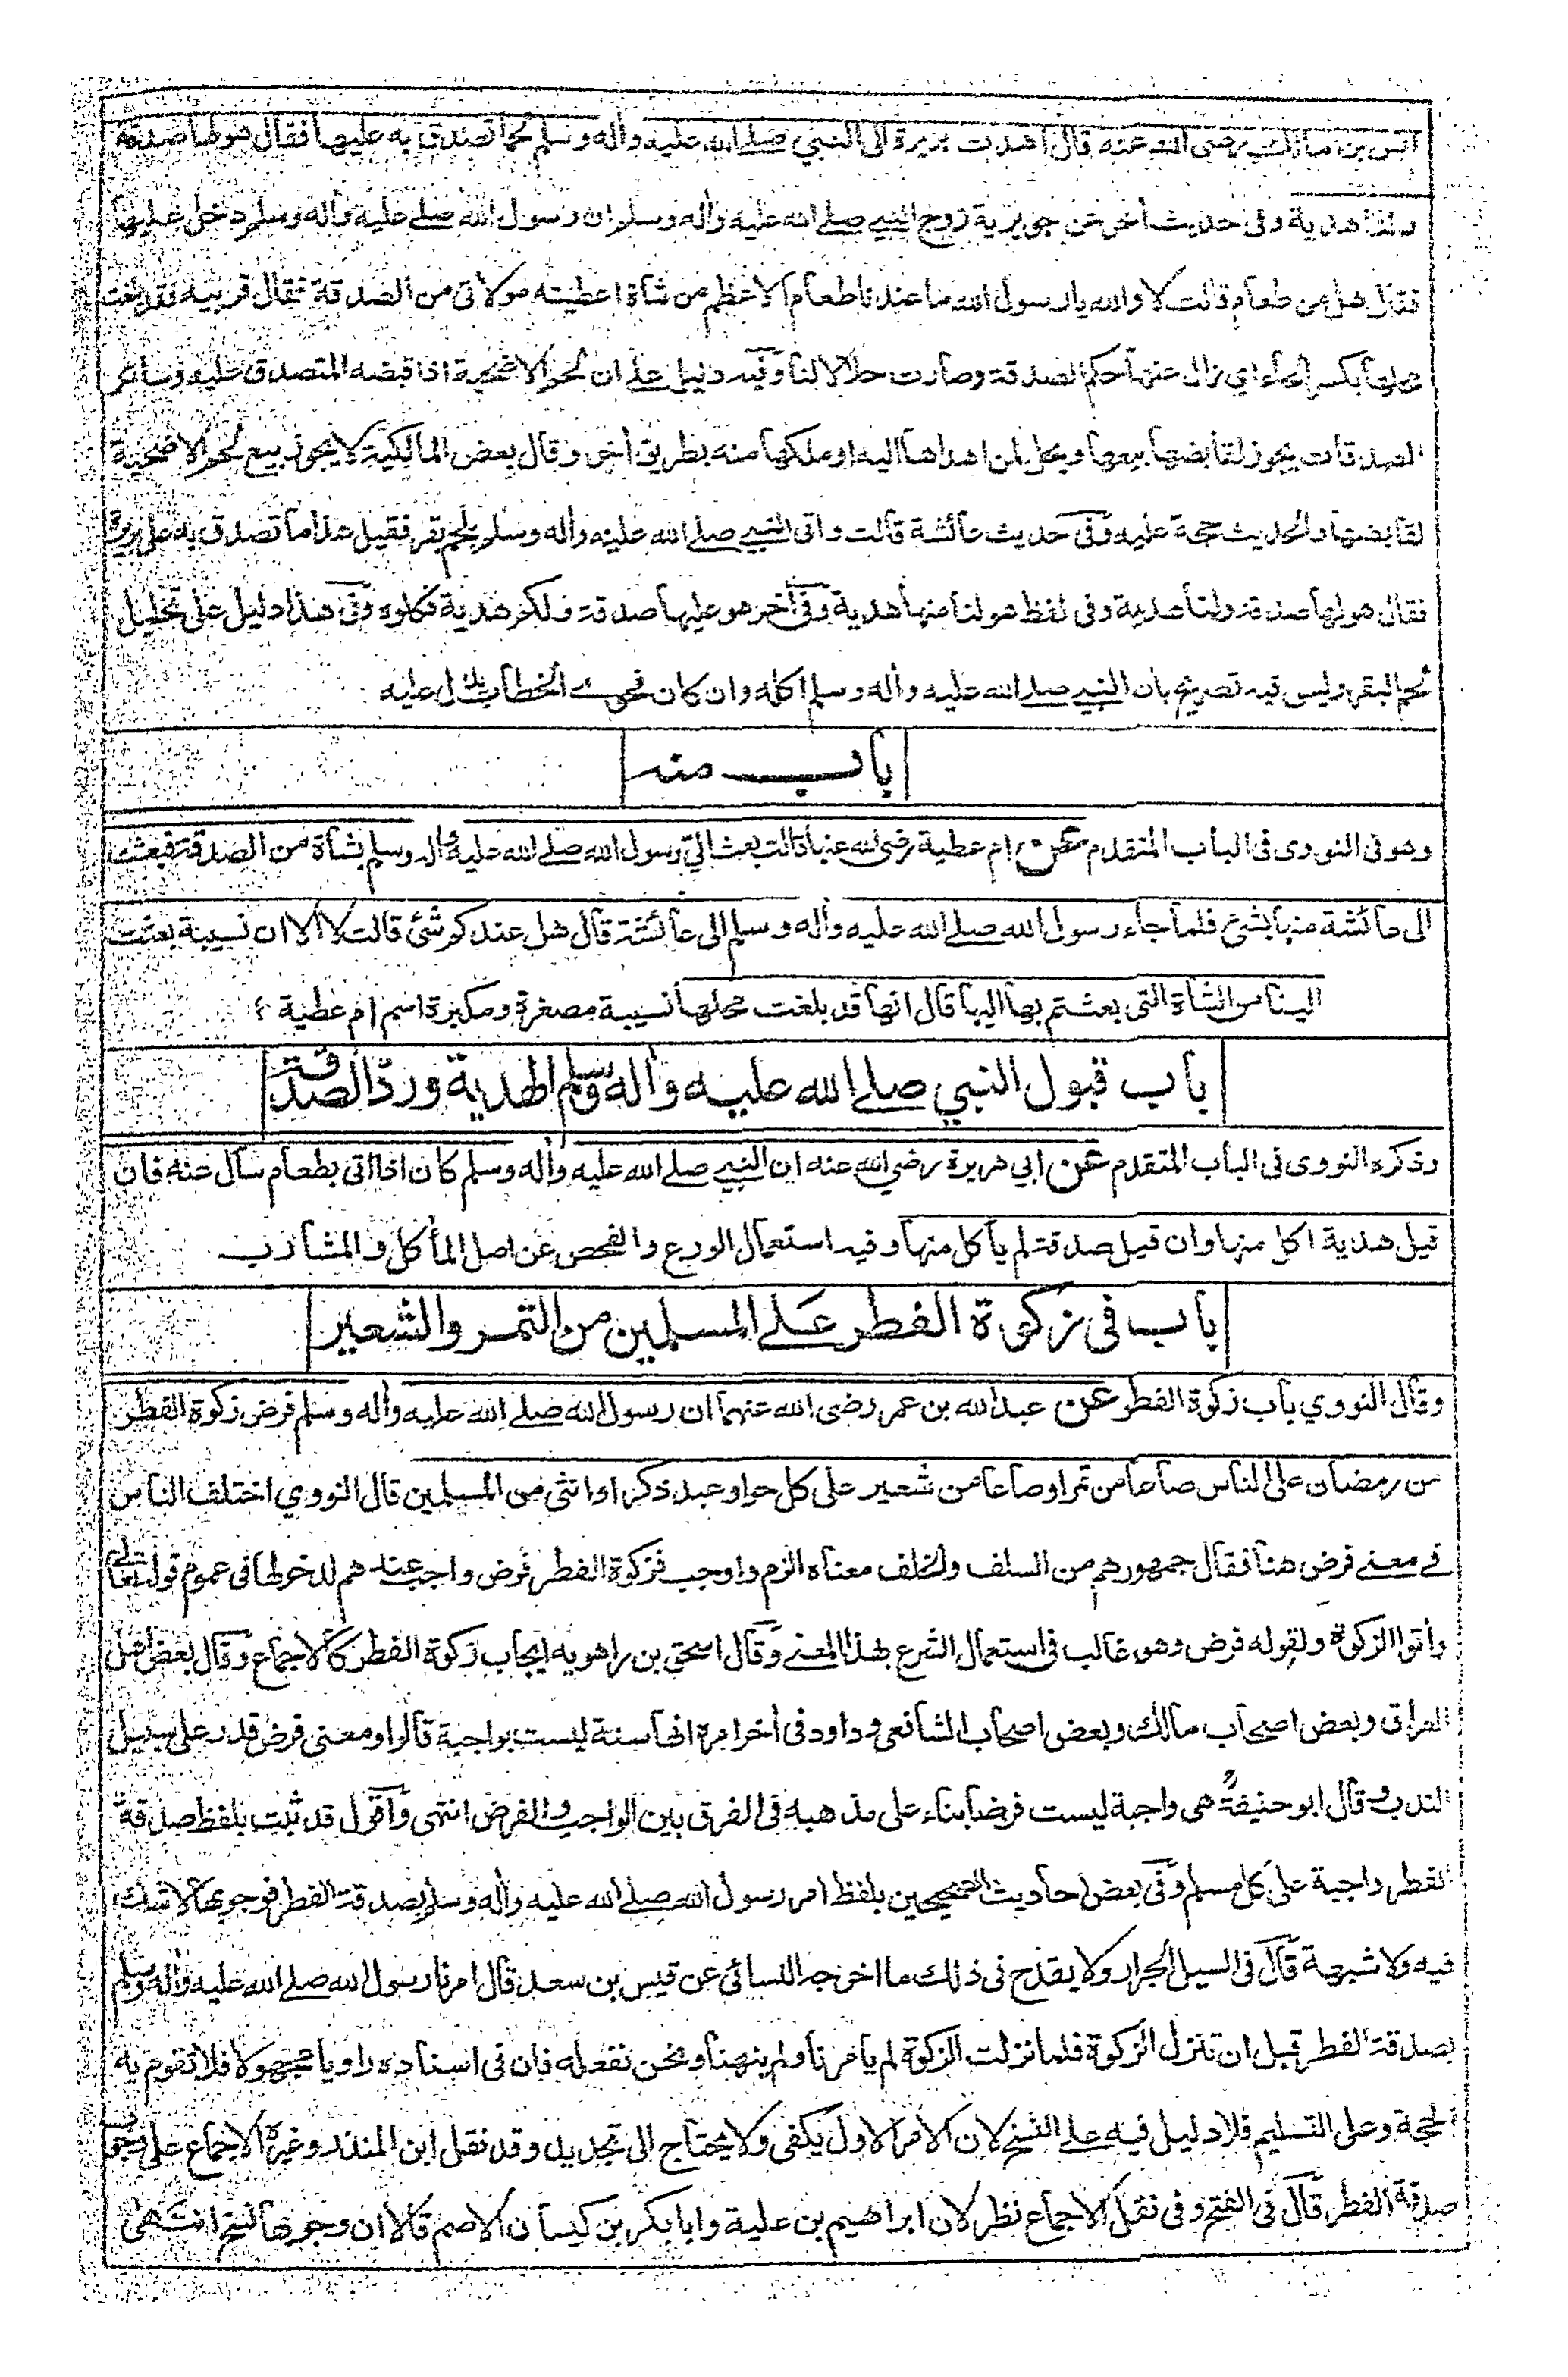 انس بن مالك رضى الله عنه قال اهدت بريرة الى النبي صلے الله عليه وأله وسلم لحما تصدق به عليها فقال هو لها صدقة
ولنا هدية وفى حديث أخر عن جويرية زوج النبي صلے الله عليه وأله وسلم ان رسول الله صلے عليه وأله وسلم دخل عليها
فقال هل من طعام قالت لا والله يا رسول الله ما عندنا طعام الا عظم من شاة اعطيته مولاتى من الصدقة فقال قربيه فقد بلغت
محلها بكسر الحاء اى زال عنها حكم الصدقة وصارت حلالا لنا وفيه دليل علے ان لحم الاضحية اذا قبضه المتصدق عليه وسائر
الصدقات يجوز لقابضها بيعها ويحل لمن اهداها اليه او ملكها منه بطريق أخر وقال بعض المالكية لا يجوز بيع لحم الاضحية
لقابضها والحديث حجة عليه وفى حديث عائشة قالت واتى النبي صلے الله عليه وأله وسلم بلحم بقر فقيل هذا ما تصدق به على بريرة
فقال هو لها صدقة ولنا هدية وفى لفظ هو لنا منها هدية وفى أخر هو عليها صدقة ولكم هدية فكلوه وفى هذا دليل على تحليل
لحم البقر وليس فيه تصريح بان النبي صلے الله عليه وأله وسلم اكله وان كان فحوے الخطاب يدل عليه
باب منه
وهو فى النووى فى الباب المتقدم عن ام عطية رضى الله عنها قالت بعث الىّ رسول الله صلے الله عليه وأله وسلم بشاة من الصدقة فبعثت
الى عائشة منها بشئ فلما جاء رسول الله صلے الله عليه وأله وسلم الى عائشة قال هل عندكم شئ قالت لا الا ان نسيبة بعثت
الينا من الشاة التى بعثتم بها اليها قال انها قد بلغت محلها نسيبة مصغرة ومكبرة اسم ام عطية
باب قبول النبي صلے الله عليه وأله وسلم الهدية وردّ الصدقة
وذكره النووى فى الباب المتقدم عن ابي هريرة رضي الله عنه ان النبي صلے الله عليه وأله وسلم كان اذا اتى بطعام سأل عنه فان
قيل هدية اكل منها وان قيل صدقة لم يأكل منها وفيه استعمال الورع والفحص عن اصل المأكل والمشارب
باب فى زكوة الفطر علے المسلمين من التمر والشعير
وقال النووي باب زكوة الفطر عن عبد الله بن عمر رضى الله عنهما ان رسول الله صلے الله عليه وأله وسلم فرض زكوة الفطر
من رمضان على الناس صاعا من تمر او صاعا من شعير على كل حر او عبد ذكر او انثى من المسلمين قال النووي اختلف الناس
فے معنے فرض هنا فقال جمهورهم من السلف والخلف معناه الزم واوجب فزكوة الفطر فرض واجب عندهم لدخولها فى عموم قوله تعالے
واتوا الزكوة ولقوله فرض وهو غالب فى استعمال الشرع بهذا المعنے وقال اسحق بن راهويه ايجاب زكوة الفطر كالاجماع وقال بعض اهل
العراق وبعض اصحاب مالك وبعض اصحاب الشافعى وداود فى أخر امره انها سنة ليست بواجبة قالوا ومعنى فرض قدر على سبيل
الندب وقال ابو حنيفة هى واجبة ليست فرضا بناء على مذهبه فى الفرق بين الواجب والفرض انتهى واقول قد ثبت بلفظ صدقة
الفطر واجبة على كل مسلم وفى بعض احاديث الصحيحين بلفظ امر رسول الله صلے الله عليه وأله وسلم بصدقة الفطر فوجوبها لا شك
فيه ولا شبهة قال فى السيل الجرار ولا يقدح فى ذلك ما اخرجه النسائى عن قيس بن سعد قال امرنا رسول الله صلے الله عليه وأله وسلم
بصدقة الفطر قبل ان تنزل الزكوة فلما نزلت الزكوة لم يأمرنا ولم ينهنا ونحن نفعله فان فى اسناده راويا مجهولا فلا تقوم به
الحجة وعلى التسليم فلا دليل فيه علے النسخ لان الامر الاول يكفى ولا يحتاج الى تجديد وقد نقل ابن المنذر وغيره الاجماع على وجوب
صدقة الفطر قال فى الفتح وفى نقل الاجماع نظر لان ابراهيم بن علية وابا بكر بن كيسان الاصم قالا ان وجوبها نسخ انتهى